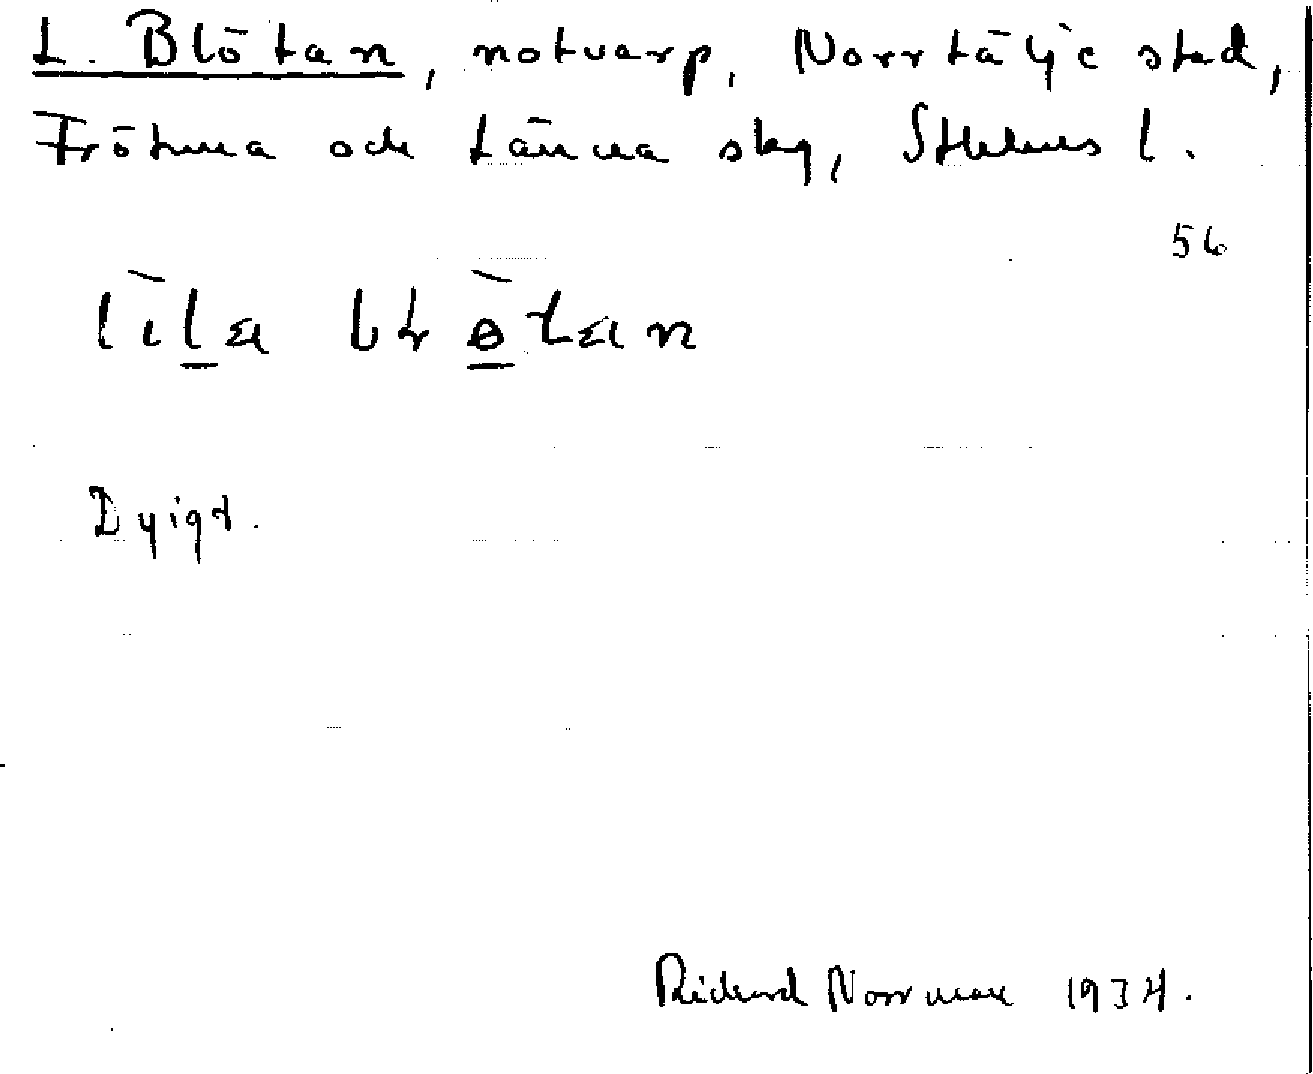 L. Blötan, notvarp, Norrtälje stad,
Frötuna och Länna skg, Sthlms l.
56
lìla blø̀tan
Dyigt.
Richard Norrman 1934.